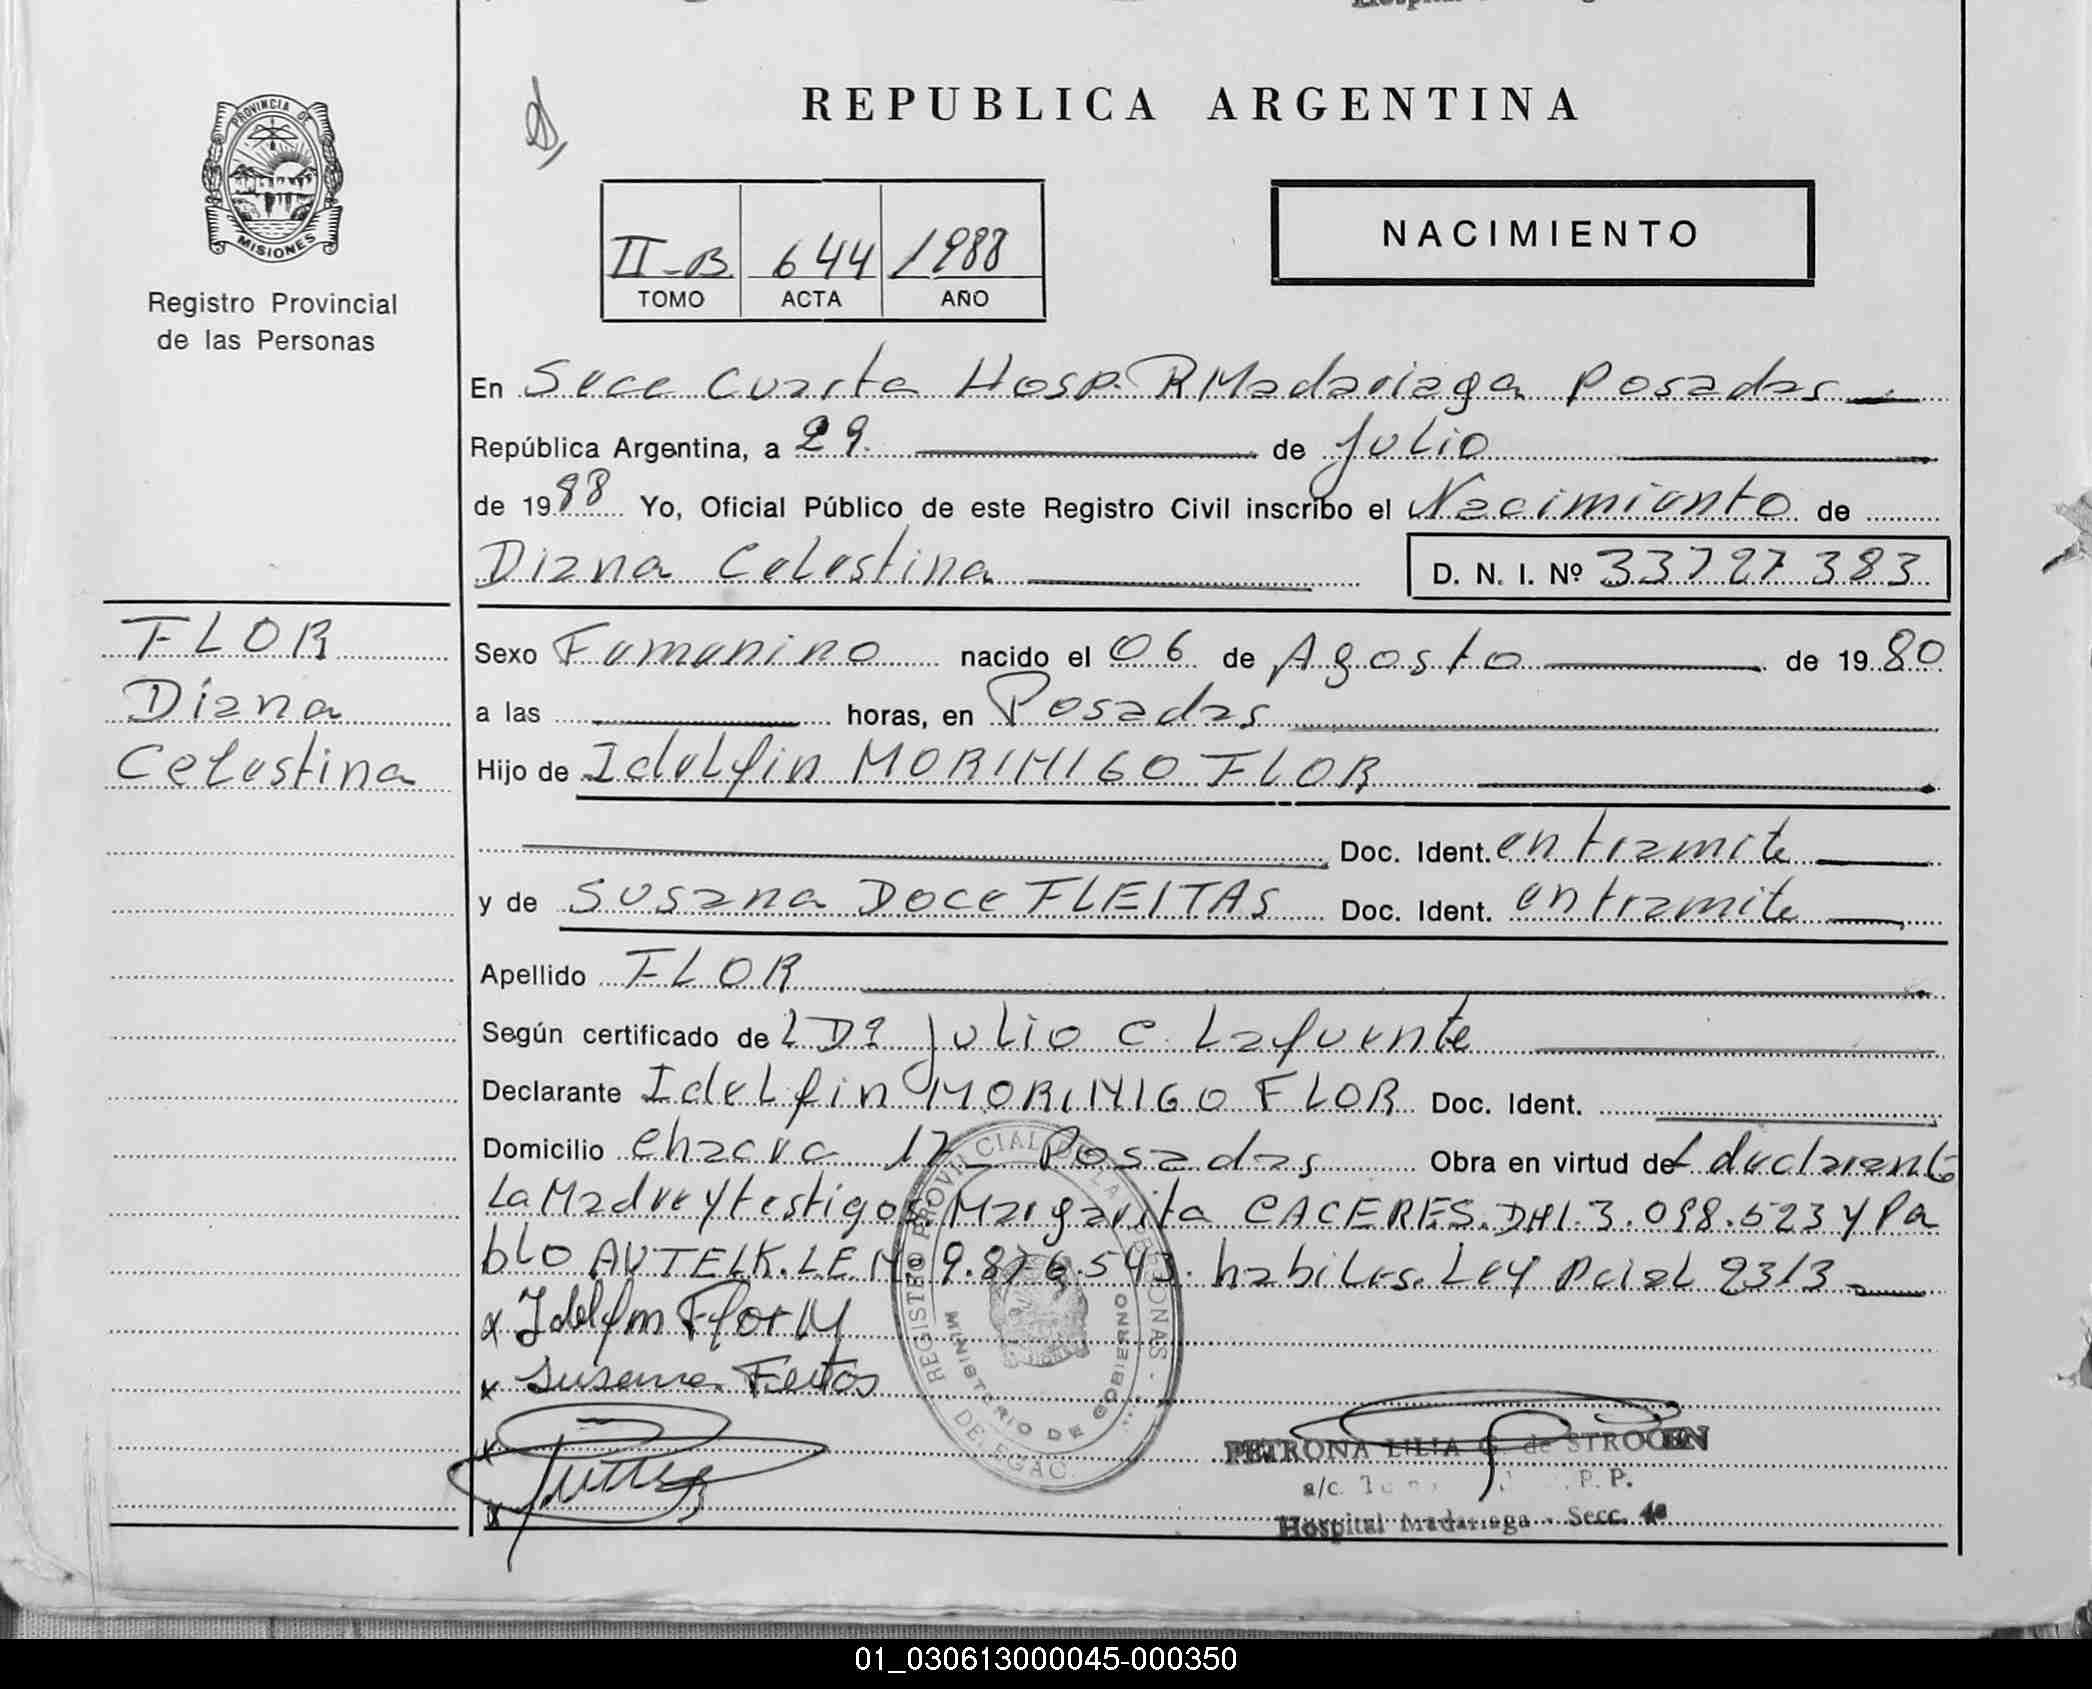 REPUBLICA ARGENTINA
PROVINCIA DE
MISIONES
Registro Provincial
de las Personas
II-B 644 1988
TOMO ACTA AÑO
NACIMIENTO
En Secc Cuarta Hosp. R Madariaga Posadas
República Argentina, a 29 de Julio
de 1988 Yo, Oficial Público de este Registro Civil inscribo el Nacimiento de
Diana Celestina D. N. I. Nº 33727383
FLOR
Diana
Celestina
Sexo Femenino nacido el 06 de Agosto de 1980
a las horas, en Posadas
Hijo de Idelfin MORINIGO FLOR
Doc. Ident. en tramite
y de Susana Doce FLEITAS Doc. Ident. en tramite
Apellido FLOR
Según certificado de L Dr Julio C. Lafuente
Declarante Idelfin MORINIGO FLOR Doc. Ident.
Domicilio Chacra 17 Posadas Obra en virtud del declarante
La Madre y testigos Margarita CACERES. DNI. 3.098.523 y Pa
blo AUTELK. L.E.N 9.876.543. habiles. Ley Pcial 2313
x Idelfin Flor M
x Susana Feitos
x
x
REGISTRO PROVINCIAL DE LAS PERSONAS
MINISTERIO DE GOBIERNO
PETRONA LILIA G. de STROOEN
a/c. P. P.
Hospital Madariaga - Secc. 4a
01_030613000045-000350